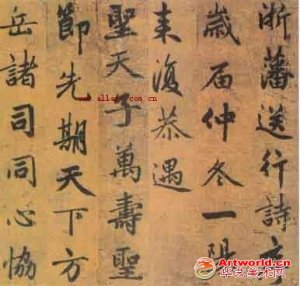 浙藩送行詩
歲屆仲冬一陽
来復恭遇
聖天子萬壽聖
節先期天下方
岳諸司同心協
Artworld.cn